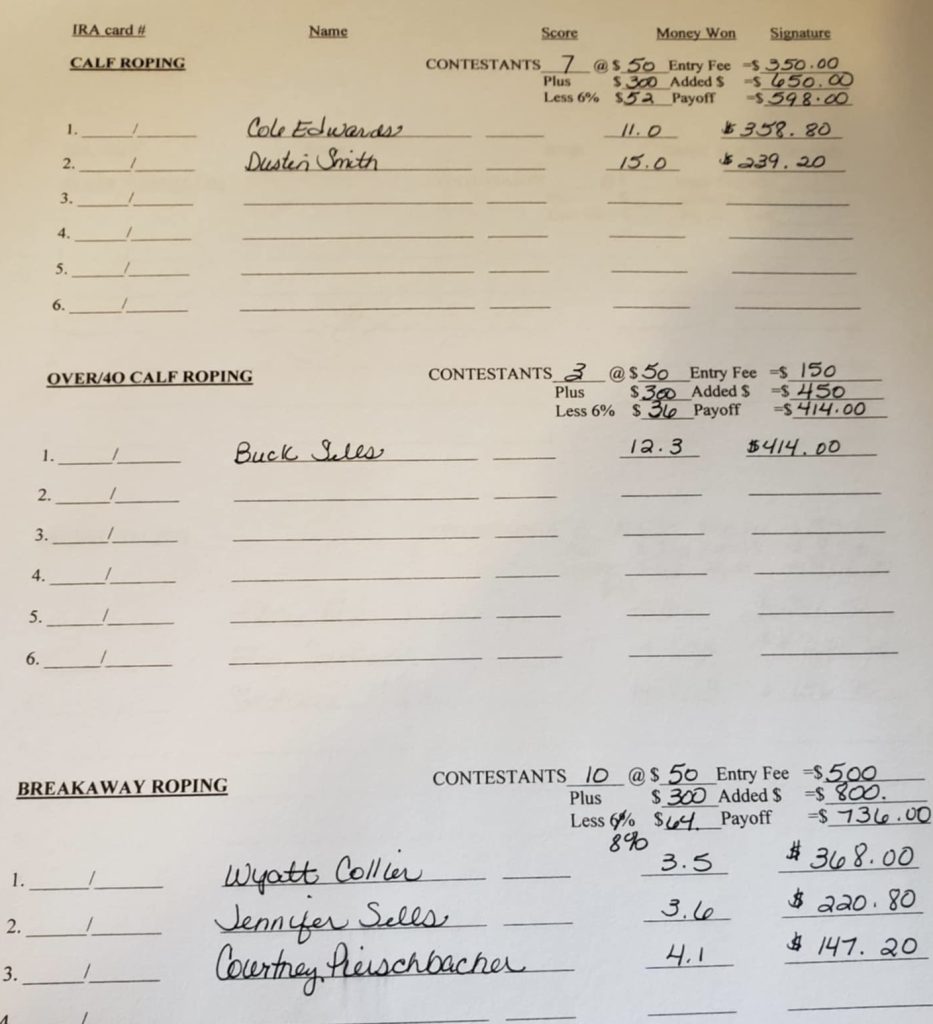 IRA card # Name Score Money Won Signature
CALF ROPING CONTESTANTS 7 @ $ 50 Entry Fee =$ 350.00
Plus $ 300 Added $ =$ 650.00
Less 6% $52 Payoff =$ 598.00
1. / Cole Edwards 11.0 $ 358.80
2. / Dustin Smith 15.0 $ 239.20
3. /
4. /
5. /
6. /
OVER/40 CALF ROPING CONTESTANTS 3 @ $ 50 Entry Fee =$ 150
Plus $ 300 Added $ =$ 450
Less 6% $ 36 Payoff =$ 414.00
1. / Buck Sells 12.3 $414.00
2. /
3. /
4. /
5. /
6. /
BREAKAWAY ROPING CONTESTANTS 10 @ $ 50 Entry Fee =$ 500
Plus $ 300 Added $ =$ 800.
Less 6% $64. Payoff =$ 736.00
8%
1. / Wyatt Collier 3.5 $ 368.00
2. / Jennifer Sells 3.6 $ 220.80
3. / Courtney Pieischbacher 4.1 $ 147.20
4. /